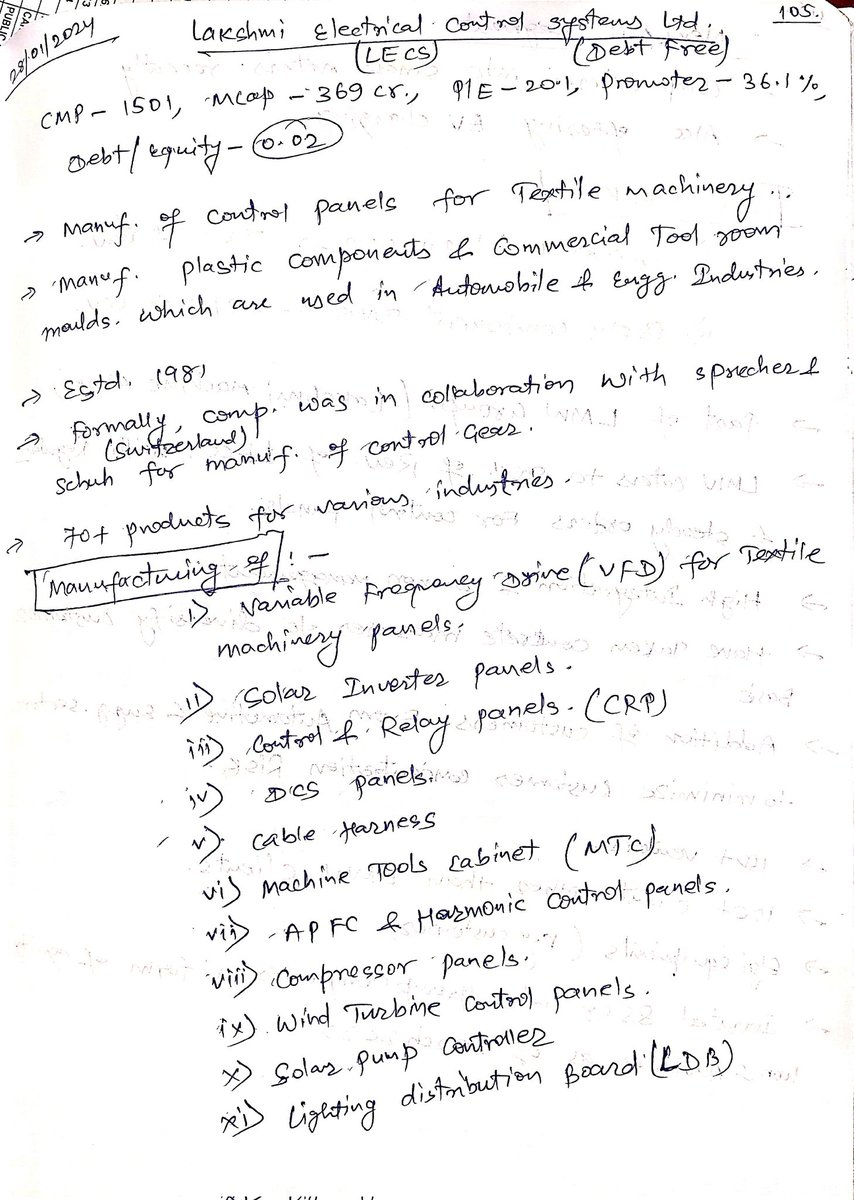 105.
28/01/2024
Lakshmi Electrical Control Systems Ltd.
(LECS) (Debt Free)
CMP - 1501, Mcap - 369 cr., P/E - 20.1, Promoter - 36.1%,
Debt/Equity - 0.02
→ Manuf. of control panels for Textile machinery..
→ Manuf. plastic components & Commercial Tool room
moulds. which are used in Automobile & Engg. Industries.
→ Estd. 1981
→ Formally, comp. was in collaboration with sprecher &
(Switzerland)
schuh for manuf. of control Gear.
→ 70+ products for various industries.
Manufacturing of : -
i) Variable Frequency Drive (VFD) for Textile
machinery panels.
ii) Solar Inverter panels.
iii) Control & Relay panels. (CRP)
iv) DCS panels.
v) Cable Harness
vi) Machine Tools Cabinet (MTC)
vii) APFC & Harmonic Control panels.
viii) Compressor panels.
ix) Wind Turbine Control panels.
x) Solar Pump Controller
xi) Lighting distribution Board (LDB)